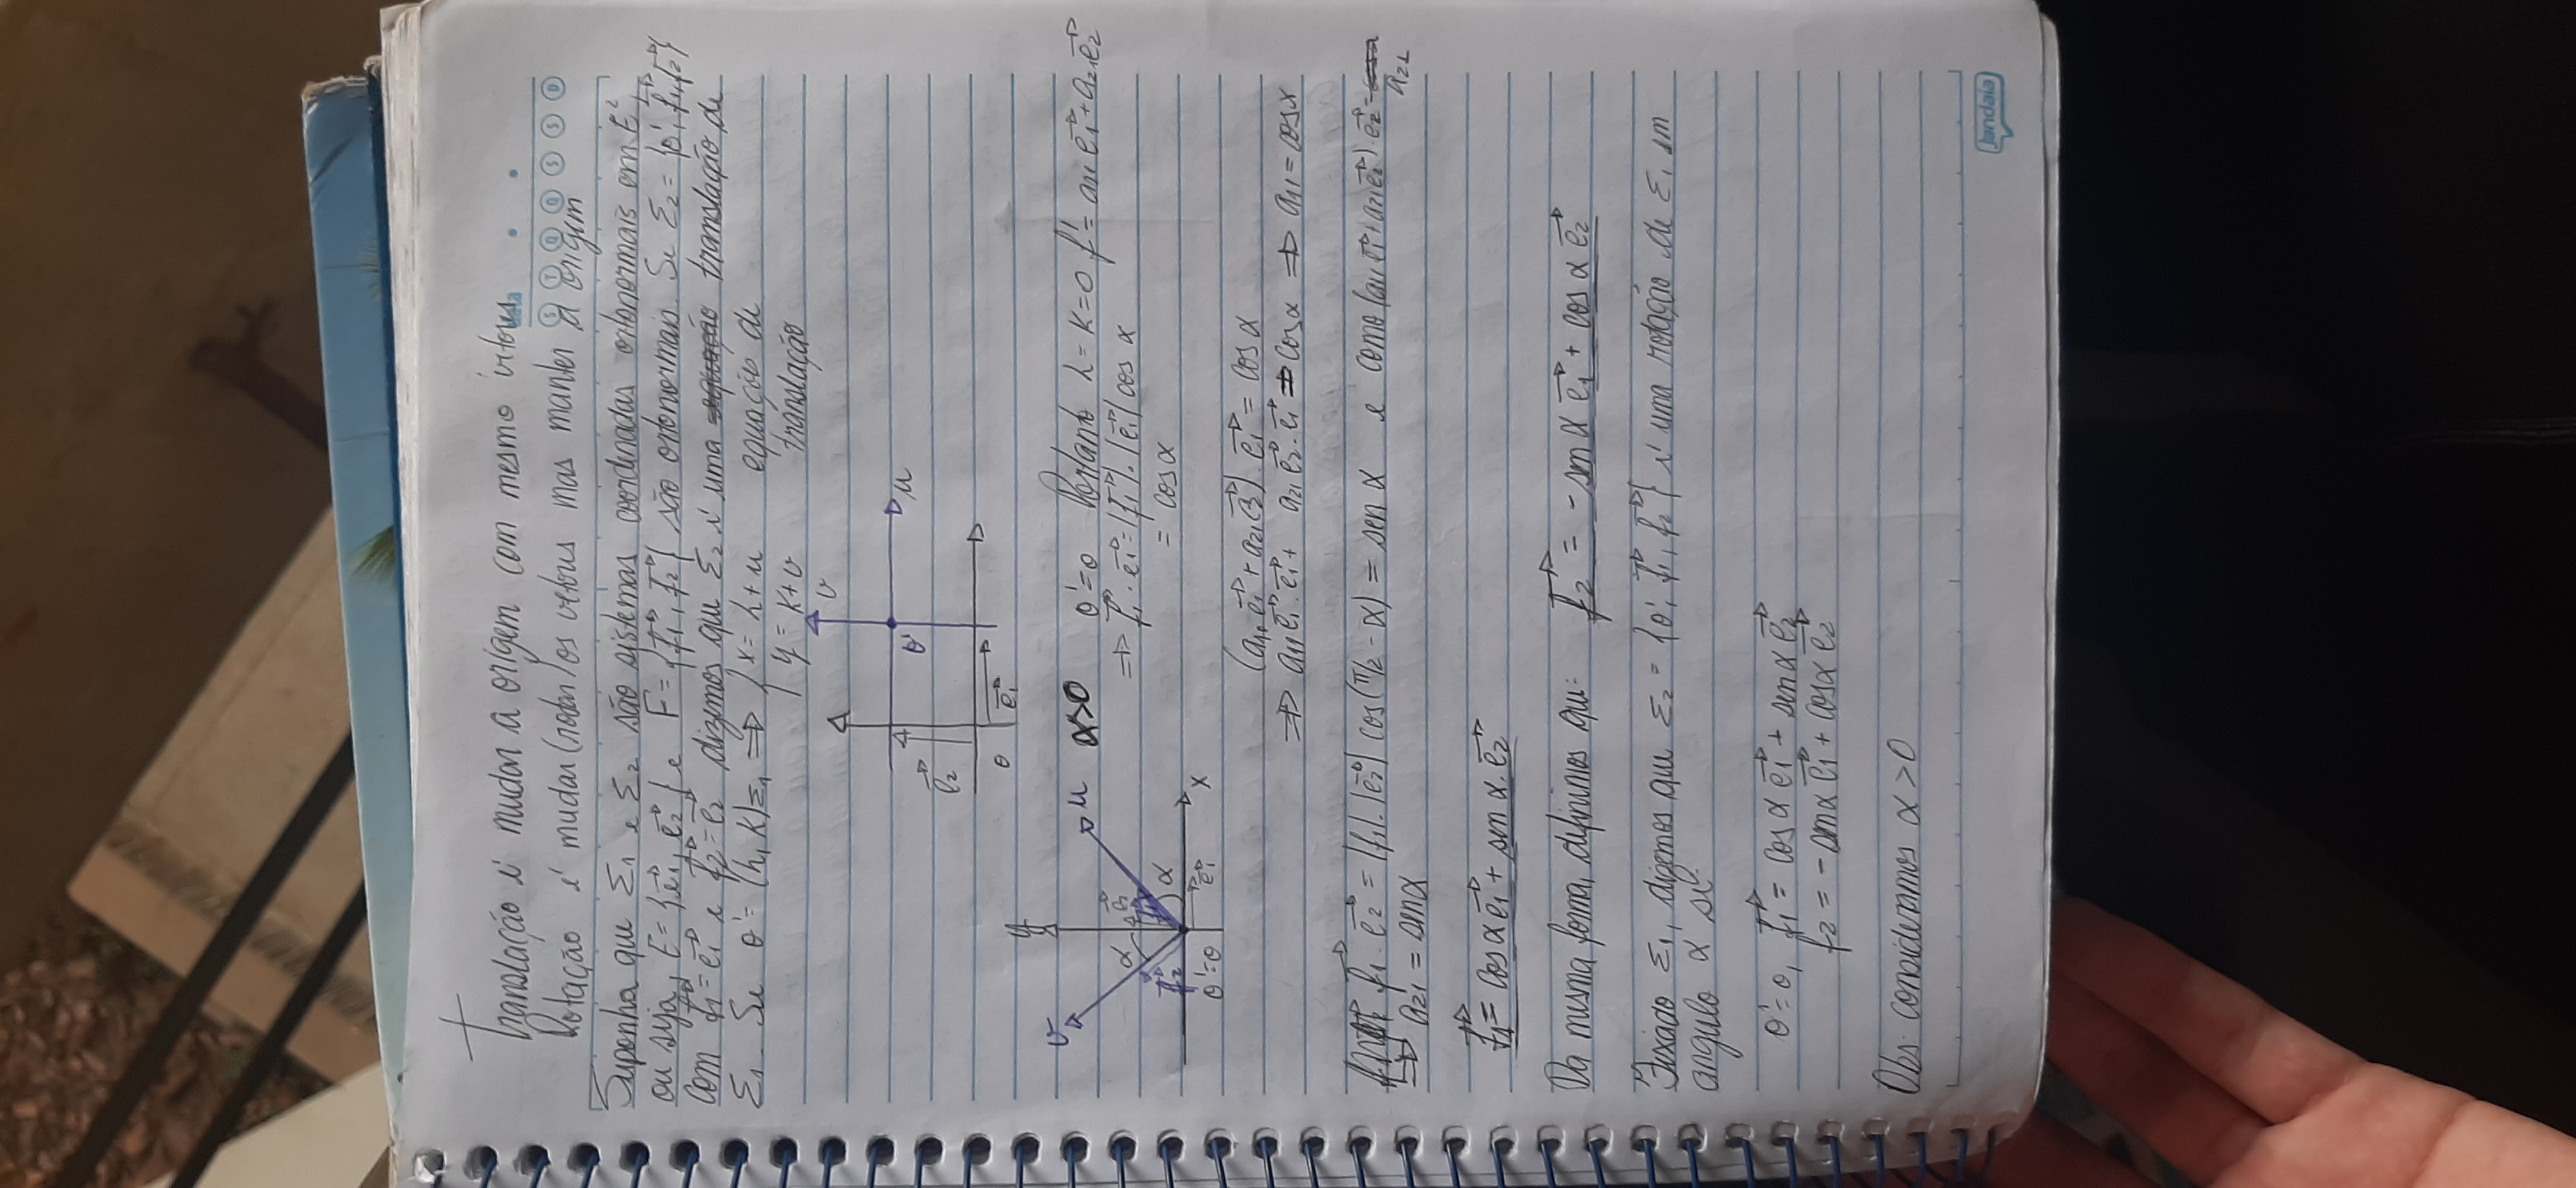 Translação é mudar a origem com mesmo vetores
data
S T Q Q S S D
Rotação é mudar (rodar) os vetores mas manter a origem
Suponha que Σ1 e Σ2 são sistemas coordenadas ortonormais em E²,
ou seja, E = {e1, e2} e F = {f1, f2} são ortonormais. Se Σ2 = {O', f1, f2}
com f1 = e1 e f2 = e2 dizemos que Σ2 é uma equação translação de
Σ1. Se O' = (h, K)Σ1 ⇒ { x = h + u equação de
y = K + v translação
v
O' u
e2
O e1
y
v u α>0 O'=O Portanto h = K = 0 f' = a11 e1 + a21 e2
α e2 f1 ⇒ f1 · e1 = |f1| · |e1| cos α
f2 α = cos α
O'=O e1 x
(a11 e1 + a21 e2) · e1 = cos α
⇒ a11 e1 · e1 + a21 e2 · e1 = cos α ⇒ a11 = cos α
f1 · e2 = |f1| · |e2| cos (π/2 - α) = sen α e como (a11 e1 + a21 e2) · e2 =
⇒ a21 = sen α a21
f1 = cos α e1 + sen α · e2
Da mesma forma, definimos que: f2 = - sen α e1 + cos α e2
Fixado Σ1, dizemos que Σ2 = {O', f1, f2} é uma rotação de Σ1 em
angulo α se:
O' = O, f1 = cos α e1 + sen α e2
f2 = - sen α e1 + cos α e2
Obs: consideramos α > 0
jandaia